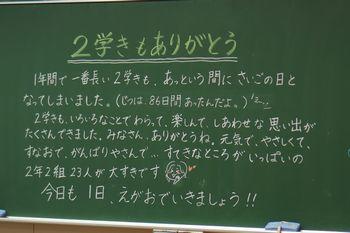 2学きもありがとう
1年間で一番長い2学きも、あっという間にさいごの日と
なってしまいました。(じつは、86日間あったんだよ。)
2学きも、いろいろなことでわらって、楽しんで、しあわせな思い出が
たくさんできました。みなさん、ありがとうね。元気で、やさしくて、
すなおで、がんばりやさんで…すてきなところがいっぱいの
2年2組23人が大すきです
今日も1日、えがおでいきましょう!!